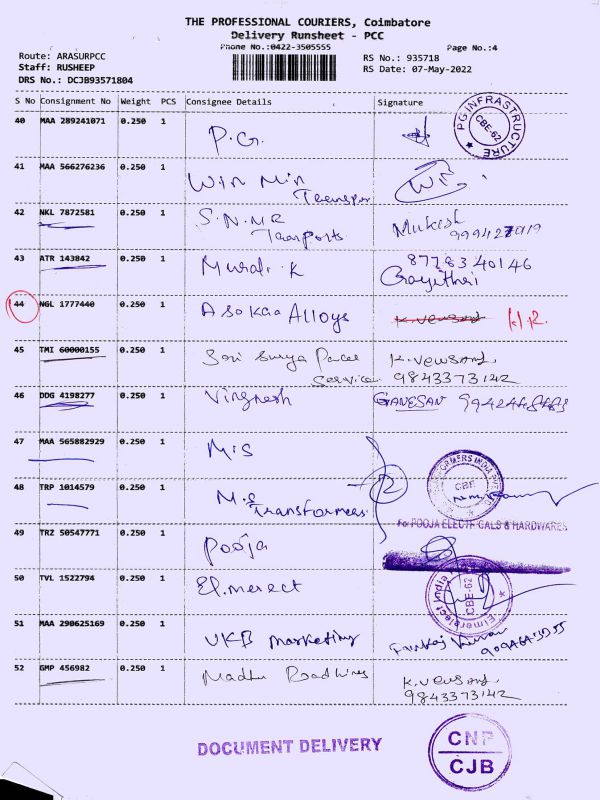 THE PROFESSIONAL COURIERS, Coimbatore
Delivery Runsheet - PCC
Phone No.:0422-3505555
Page No.:4
Route: ARASURPCC
Staff: RUSHEEP
DRS No.: DCJB93571804
RS No.: 935718
RS Date: 07-May-2022
S No Consignment No Weight PCS Consignee Details Signature
40 MAA 289241071 0.250 1 P.G.
PG INFRASTRUCTURE CBE-62
41 MAA 566276236 0.250 1 Win Win
42 NKL 7872581 0.250 1 S.N.M.R Mukesh
43 ATR 143842 0.250 1 Murali.K 8778340146
Gayithri
44 NGL 1777440 0.250 1 Asokaa Alloys
45 TMI 60000155 0.250 1 Sori Surya K.
Service 9843373142
46 DDG 4198277 0.250 1 Vingnesh GANESAN
47 MAA 565882929 0.250 1 M.S
48 TRP 1014579 0.250 1 M.S CBE
Transformers
For POOJA ELECTRICALS & HARDWARES
49 TRZ 50547771 0.250 1 Pooja
50 TVL 1522794 0.250 1 El.merect
Elmerelect India CBE-62
51 MAA 290625169 0.250 1 VKB Marketing
52 GMP 456982 0.250 1 Madhu Roadlines K.
9843373142
DOCUMENT DELIVERY
CNP
CJB